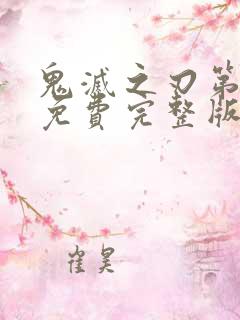 鬼滅之刃第
免費完整版
崔昊